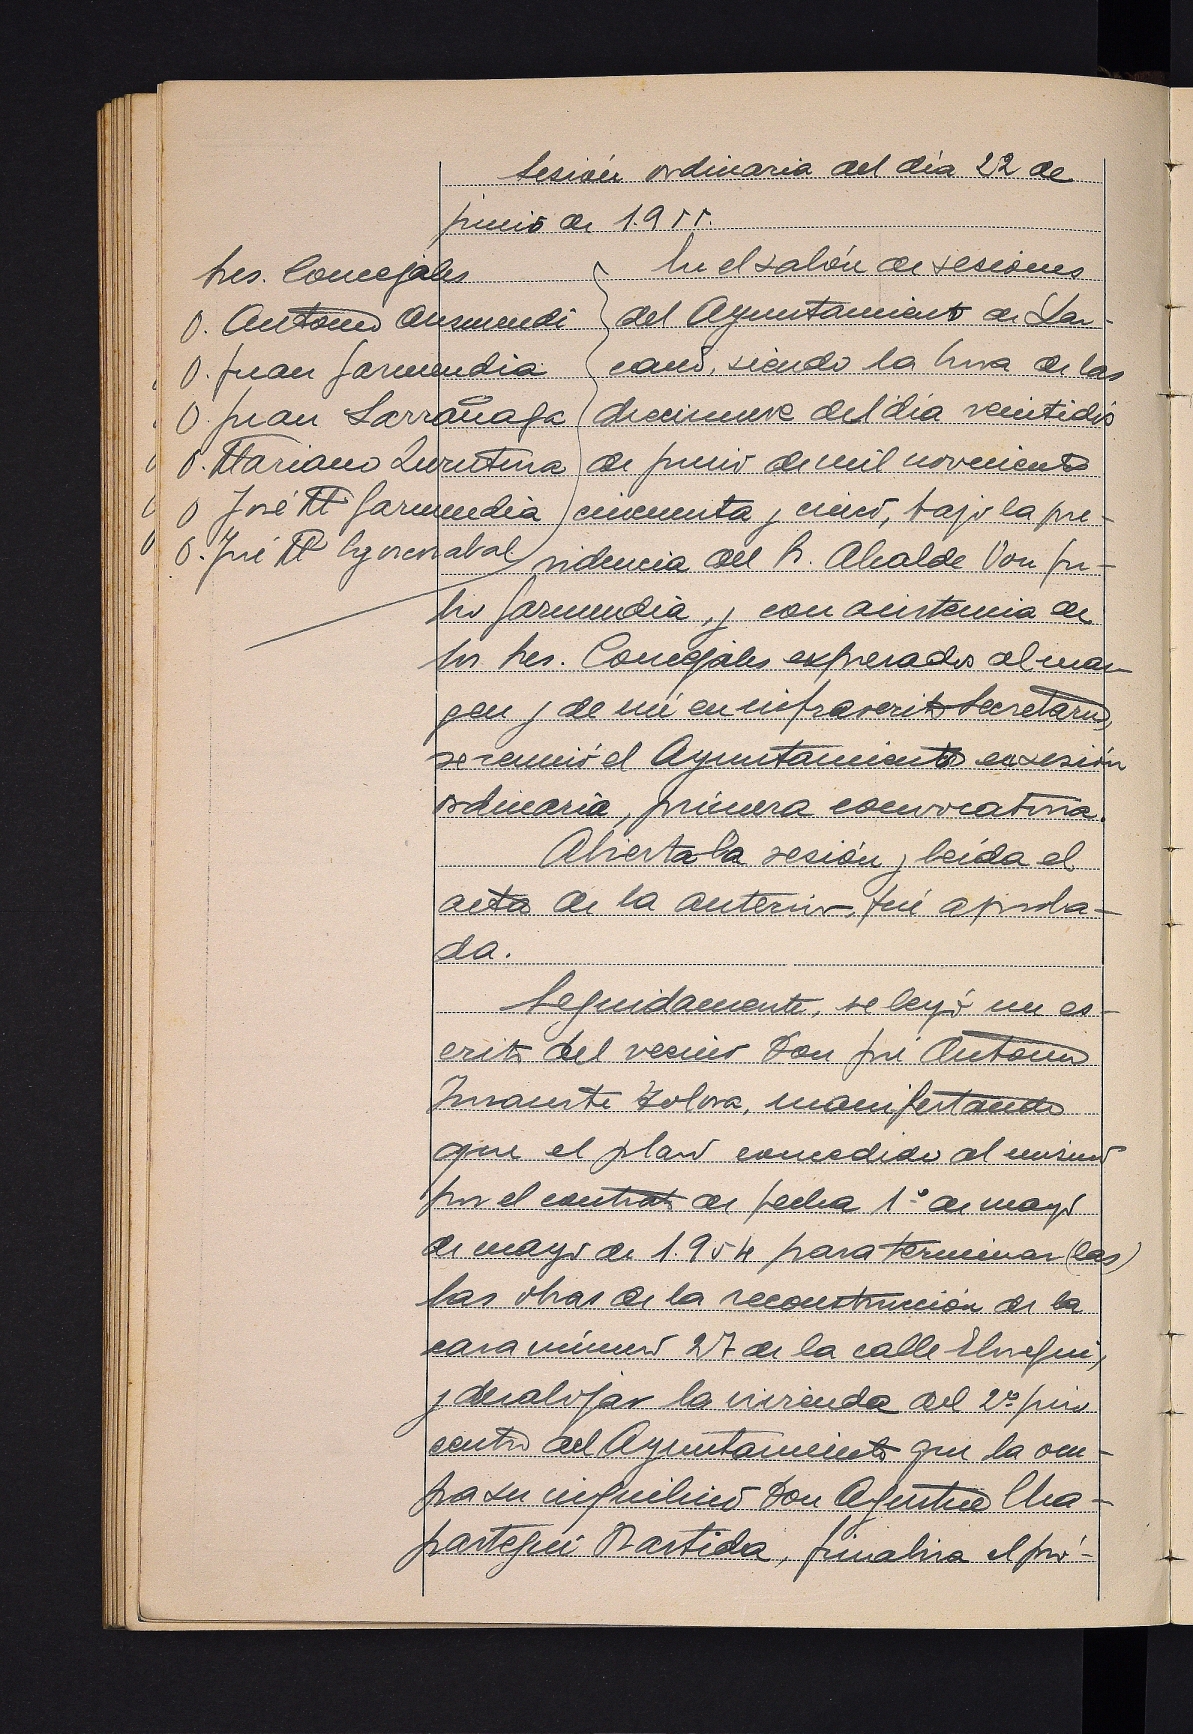 Sesión ordinaria del día 22 de
junio de 1.955.
Sres. Concejales
D. Antonio Ausmendi
D. Juan Garmendia
D. Juan Larrañaga
D. Mariano Zurutuza
D. José Mª Garmendia
D. José Mª
En el salón de sesiones
del Ayuntamiento de Laz-
cano, siendo la hora de las
diecinueve del día veintidós
de junio de mil novecientos
cincuenta y cinco, bajo la pre-
sidencia del Sr. Alcalde Don Ju-
lio Garmendia, y con asistencia de
los Sres. Concejales expresados al mar-
gen y de mí en infrascrito Secretario,
se reunió el Ayuntamiento en sesión
ordinaria, primera convocatoria.
Abierta la sesión y leída el
acta de la anterior, fué aproba-
da.
Seguidamente, se leyó un es-
crito del vecino Don José Antonio
manifestando
que el plazo concedido al mismo
por el contrato de fecha 1º de mayo
de mayo de 1.954 para terminar (las)
las obras de la reconstrucción de la
casa número 27 de la calle Elosegui,
y desalojar la vivienda del 2º piso
centro del Ayuntamiento que la ocu-
pa su inquilino Don Agustin Cha-
partegui Bastida, finaliza el pró-